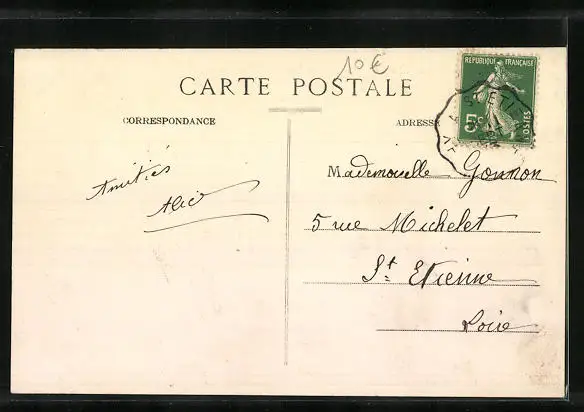 10 €
CARTE POSTALE
RÉPUBLIQUE FRANÇAISE
5c
POSTES
CORRESPONDANCE
ADRESSE
Amitiés
Alice
Mademoiselle Gounon
5 rue Michelet
St Etienne
Loire